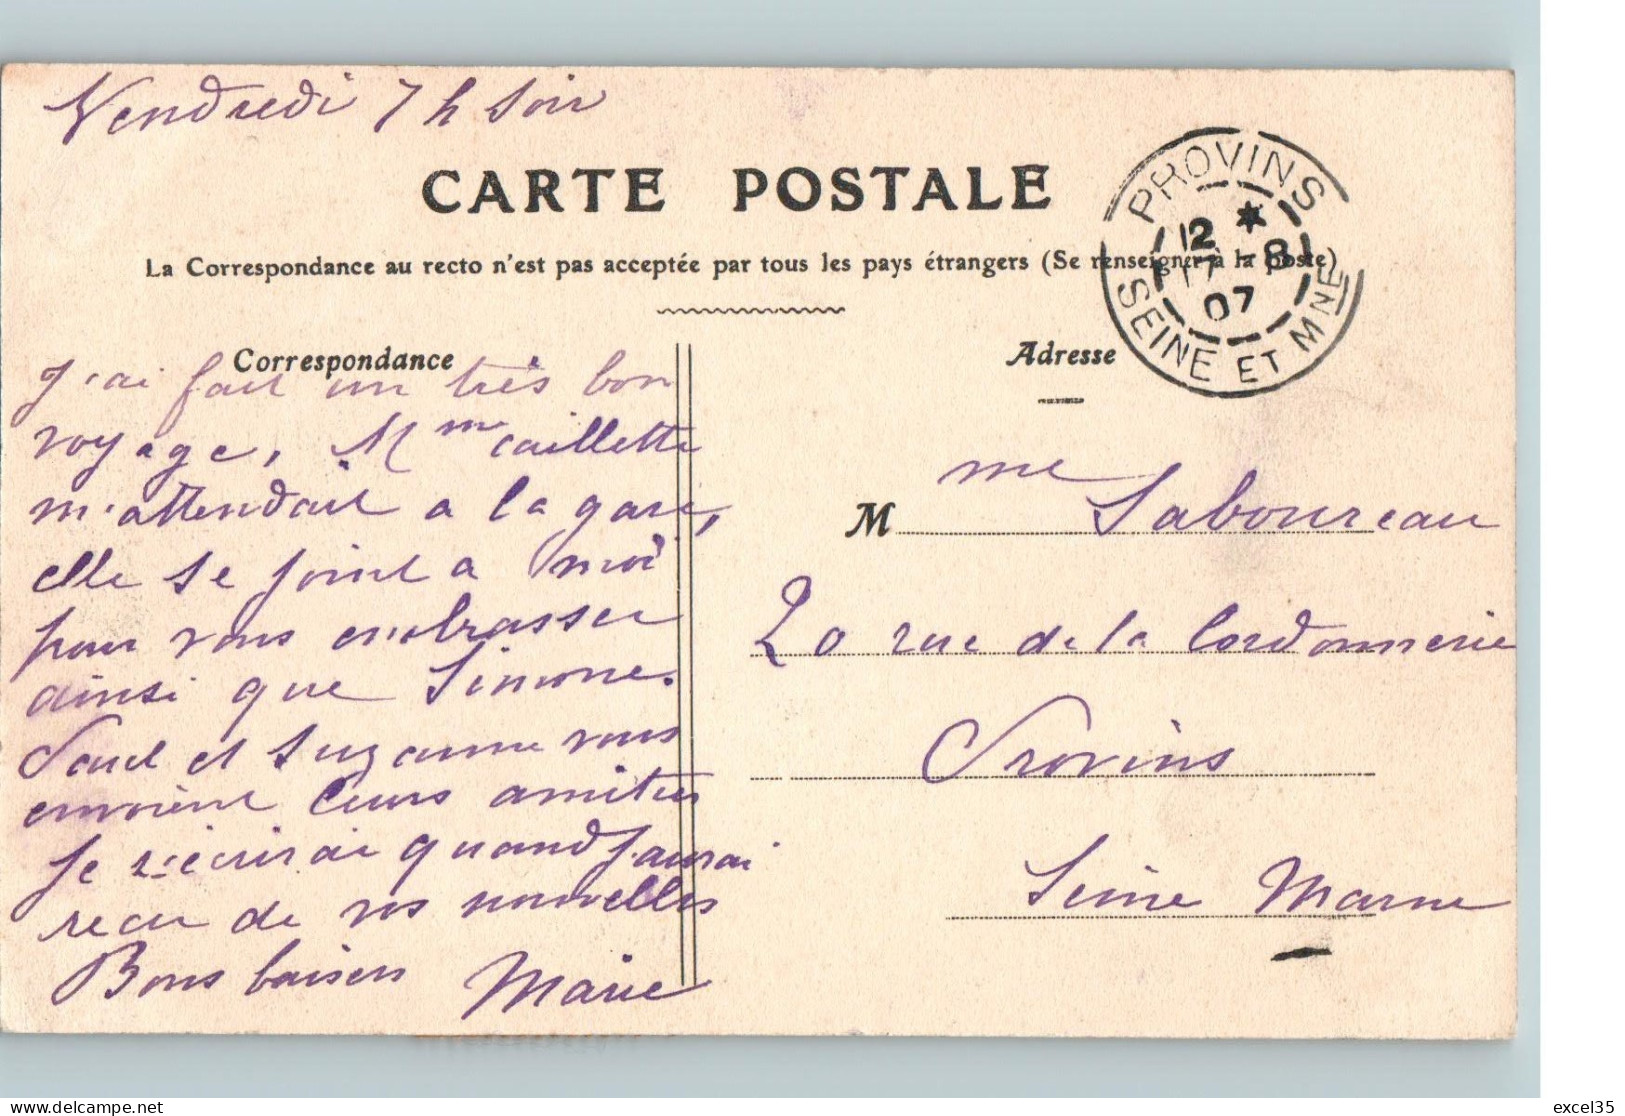 Vendredi 7 h soir
CARTE POSTALE
La Correspondance au recto n'est pas acceptée par tous les pays étrangers (Se renseigner à la poste)
PROVINS
12 *
17 - 8
07
SEINE ET MNE
Correspondance
J'ai fait un très bon
voyage, Mme Caillette
m'attendait a la gare,
elle se joint a moi
pour vous embrasser
ainsi que Simone.
Paul et Suzanne vous
envoient leurs amitiés
Je écrirai quand j'aurai
recu de vos nouvelles
Bons baisers Marie
Adresse
Mme Saboureau
20 rue de la Cordonnerie
Provins
Seine Marne
delcampe.net
excel35